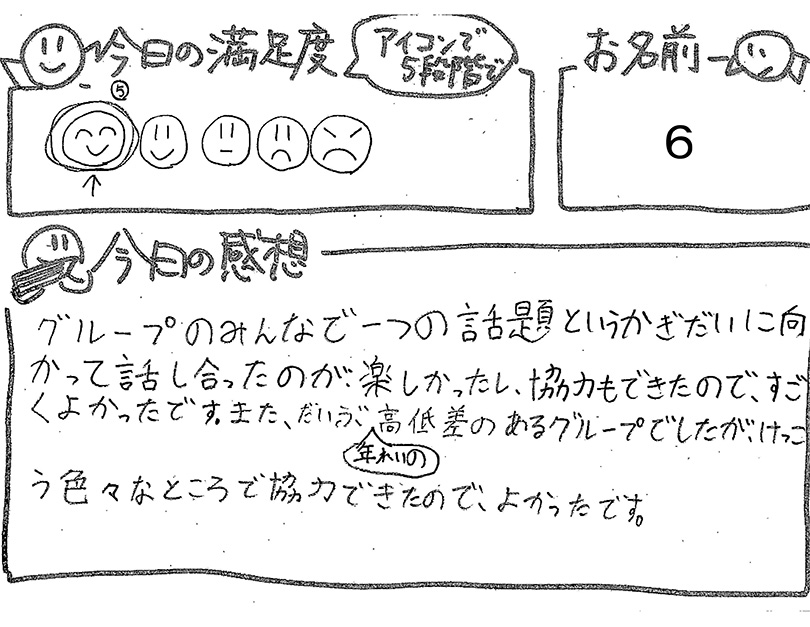 今日の満足度
アイコンで
5段階で
お名前
⑤
6
今日の感想
グループのみんなで一つの話題というかぎだいに向
かって話し合ったのが、楽しかったし、協力もできたので、すご
くよかったです。また、だいぶ高低差のあるグループでしたが、けっこ
年れいの
う色々なところで協力できたので、よかったです。